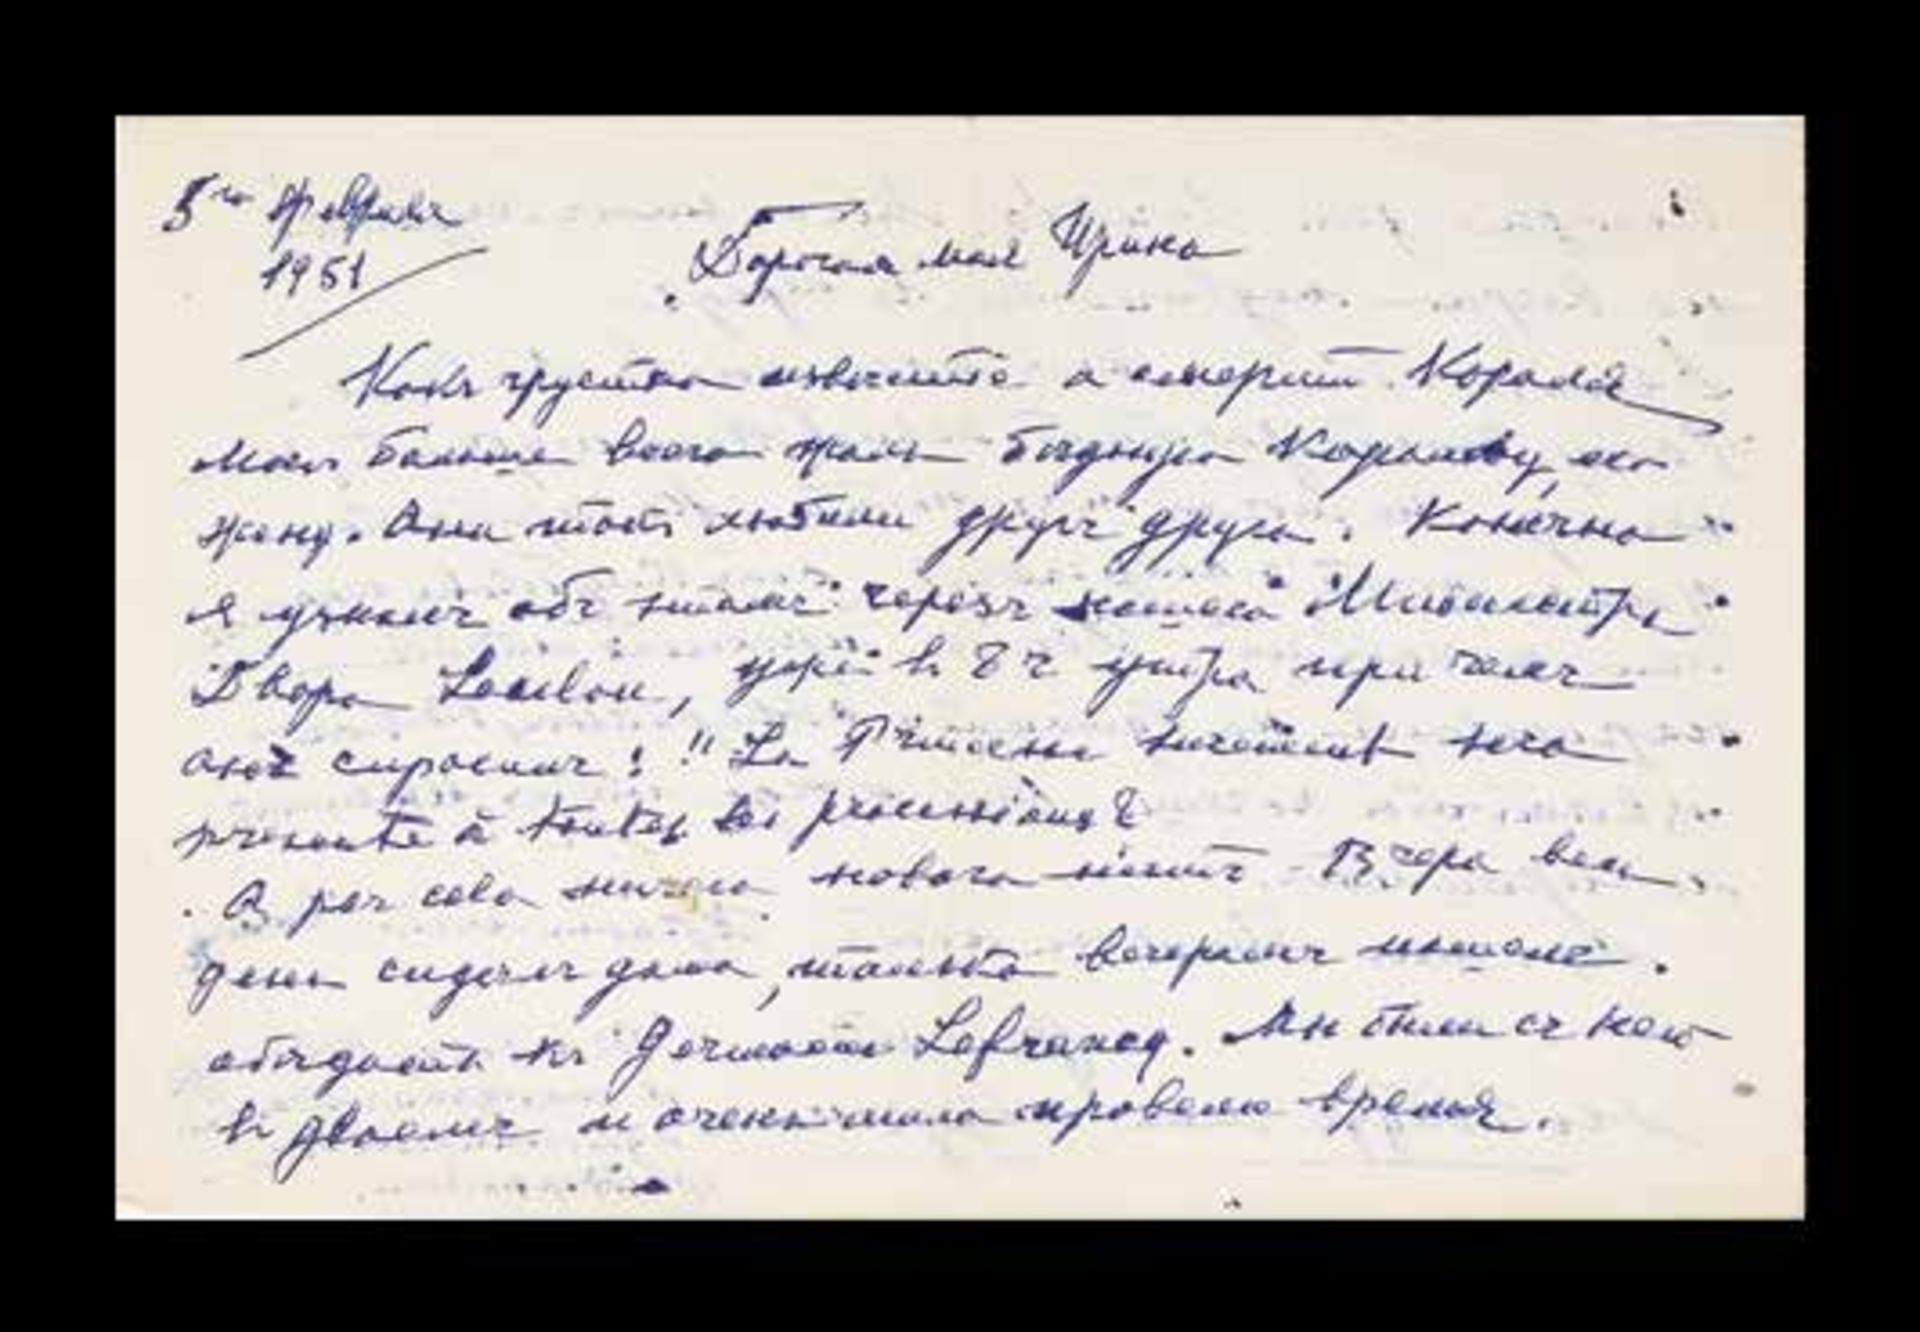 5го февраля
1951
Дорогая моя Ирина
Какъ грустно извѣстiе о смерти Короля
Мнѣ больше всего жаль бѣдную Королеву, его
жену. Они такъ любили другъ друга. Конечно
я узналъ объ этомъ черезъ нашего Министра
Двора Louilou, уже въ 8 ч утра при чемъ
онъ спросилъ: "La Princesse sera
présente à toutes les processions?
A par cela ничего новаго нѣтъ. Вчера весь
день сидѣлъ дома, только вечеромъ пошелъ
обѣдать къ Lefranc. Мы были съ нею
въ двоемъ и очень мило провели время.